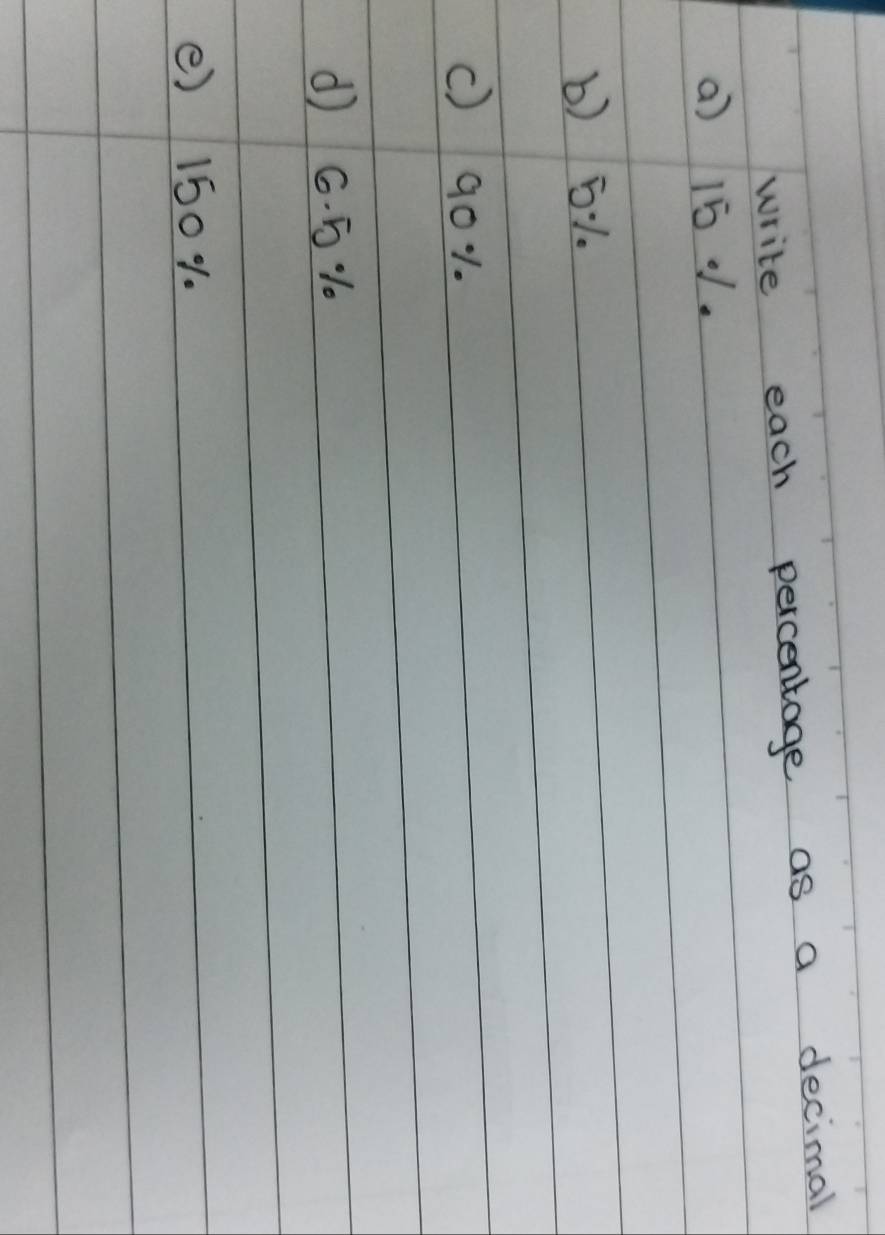 write each percentage as a decimal
a) 15 %.
b) 5%.
c) 90 %.
d) 6.5 %
e) 150 %.